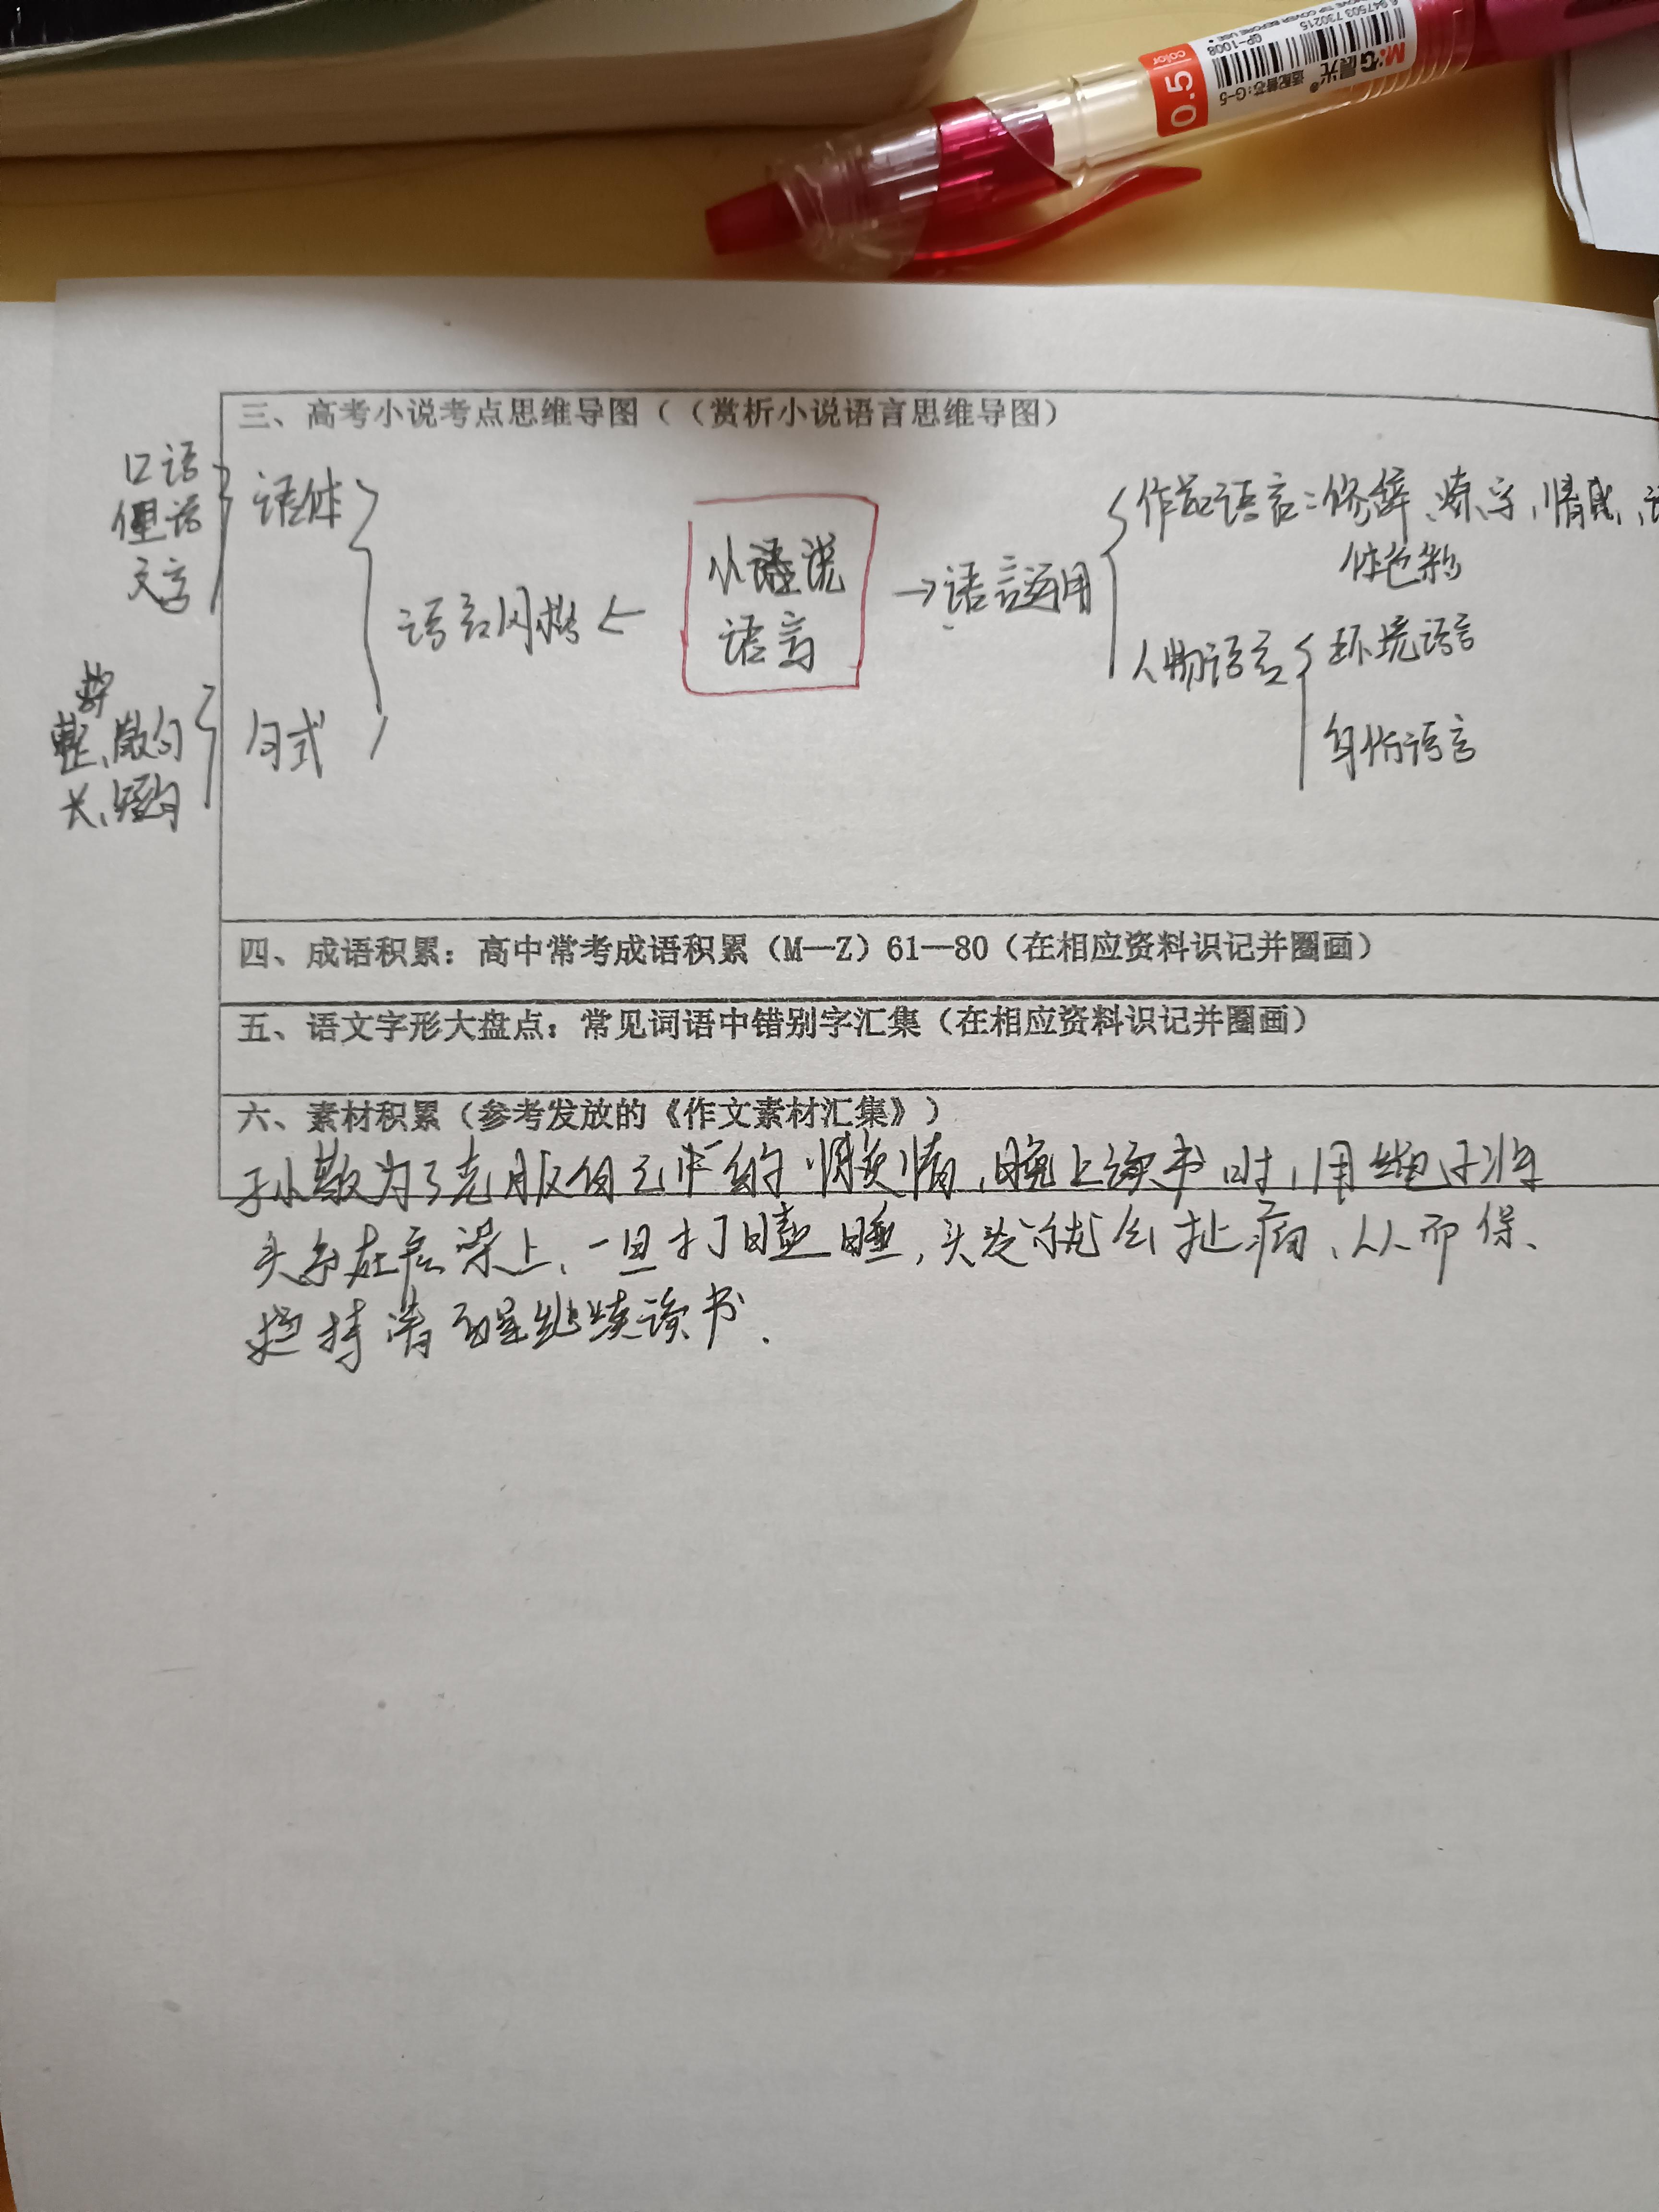 6 947503 730215
QP-1008
M&G晨光®
适配替芯:G-5
color
0.5
三、高考小说考点思维导图（（赏析小说语言思维导图）
口语
俚语
文言
语体
整、散句
长、短句
句式
语言风格 ←
小说
语言
→语言运用
作品语言:修辞、炼字、情感、语
体色彩
人物语言
环境语言
身份语言
四、成语积累：高中常考成语积累（M—Z）61—80（在相应资料识记并圈画）
五、语文字形大盘点：常见词语中错别字汇集（在相应资料识记并圈画）
六、素材积累（参考发放的《作文素材汇集》）
孙敬为了克服自己作的惰,晚上读书时,用绳子将
头系在房梁上、一旦打瞌睡,头发就会扯痛、从而保、
持清醒继续读书.